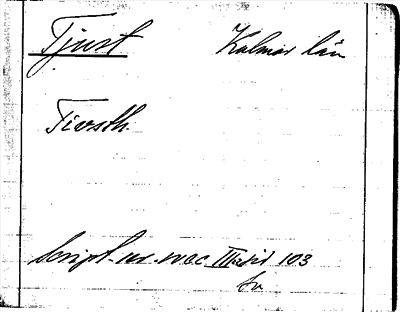 Tjust Kalmar län
Tiosth.
Script. rer. svec. III 103